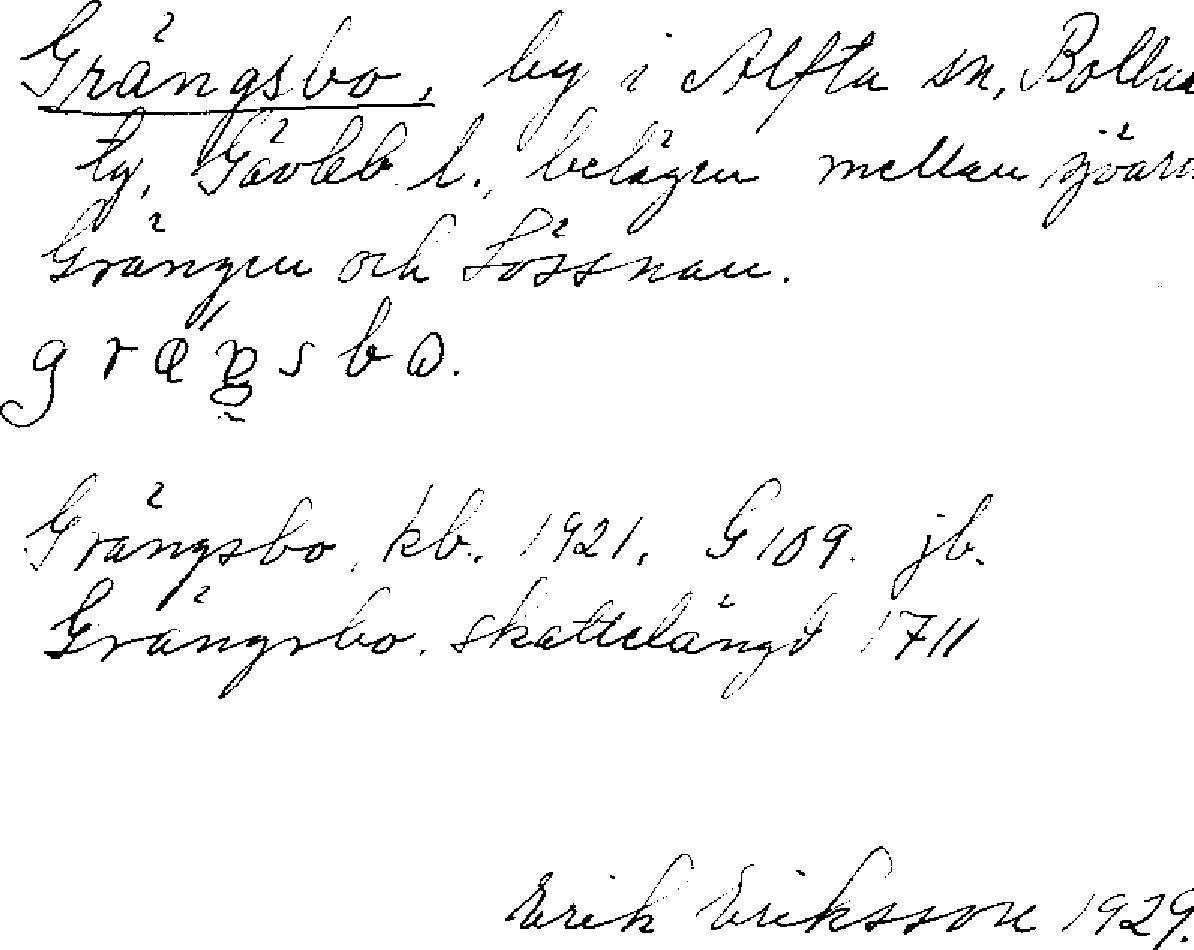 Grängsbo, by i Alfta sn, Bollnä
tg, Gävleb. l., belägen mellan sjöarn
Grängen och Lössnan.
græŋsbo.
Grängsbo, kb. 1921. G 109. jb.
Grängsbo. skattelängd 1711
Erik Eriksson 1929.